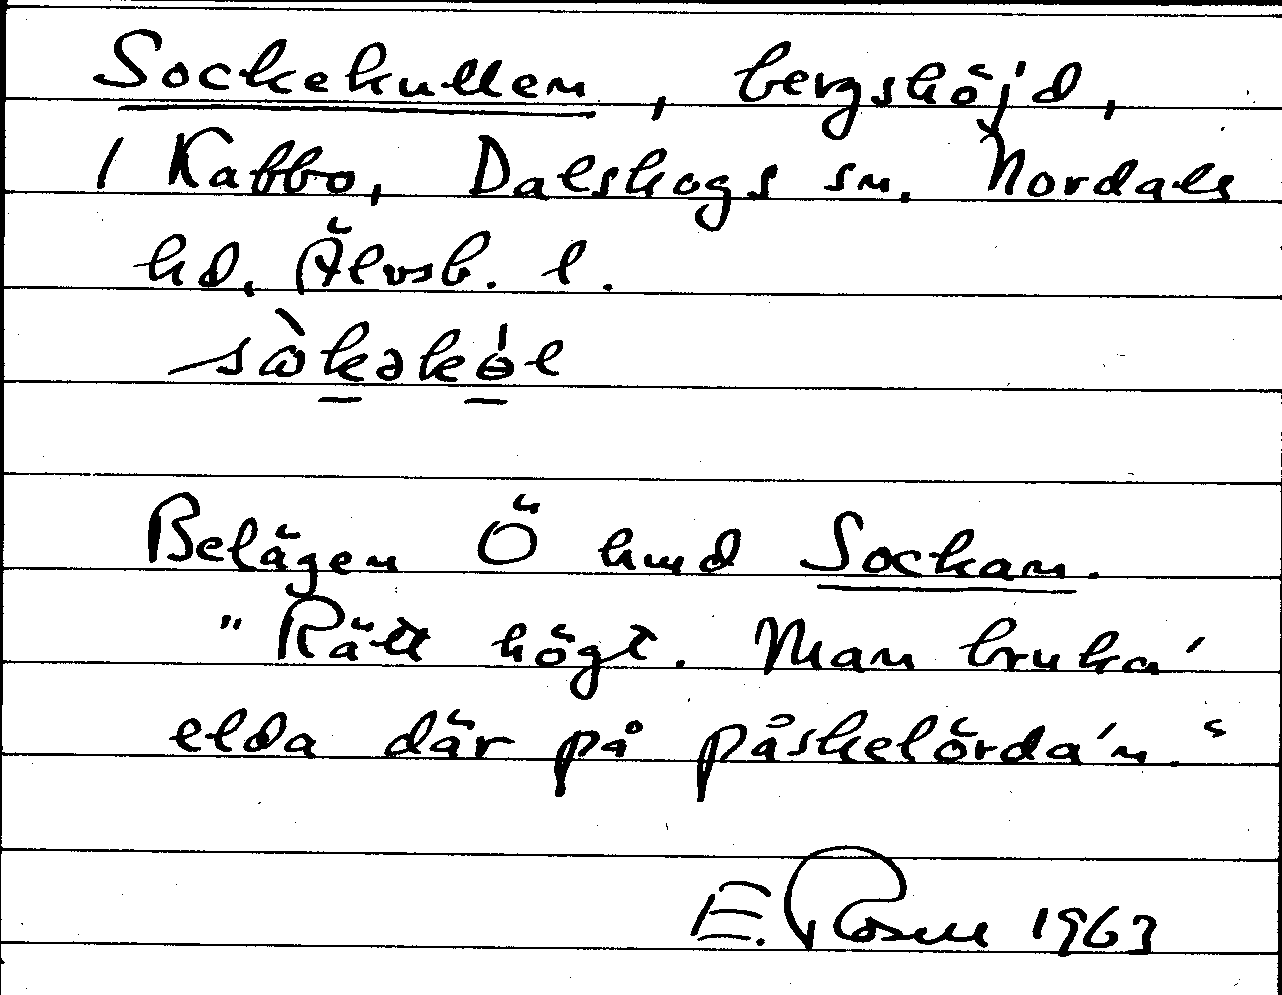 Sockekullen, bergshöjd,
1 Kabbo, Dalskogs sn. Nordals
hd, Älvsb. l.
sòkəkɵ́l
Belägen Ö hmd Sockan.
"Rätt högt. Man bruka'
elda där på påskelörda'n."
E. Rosell 1963